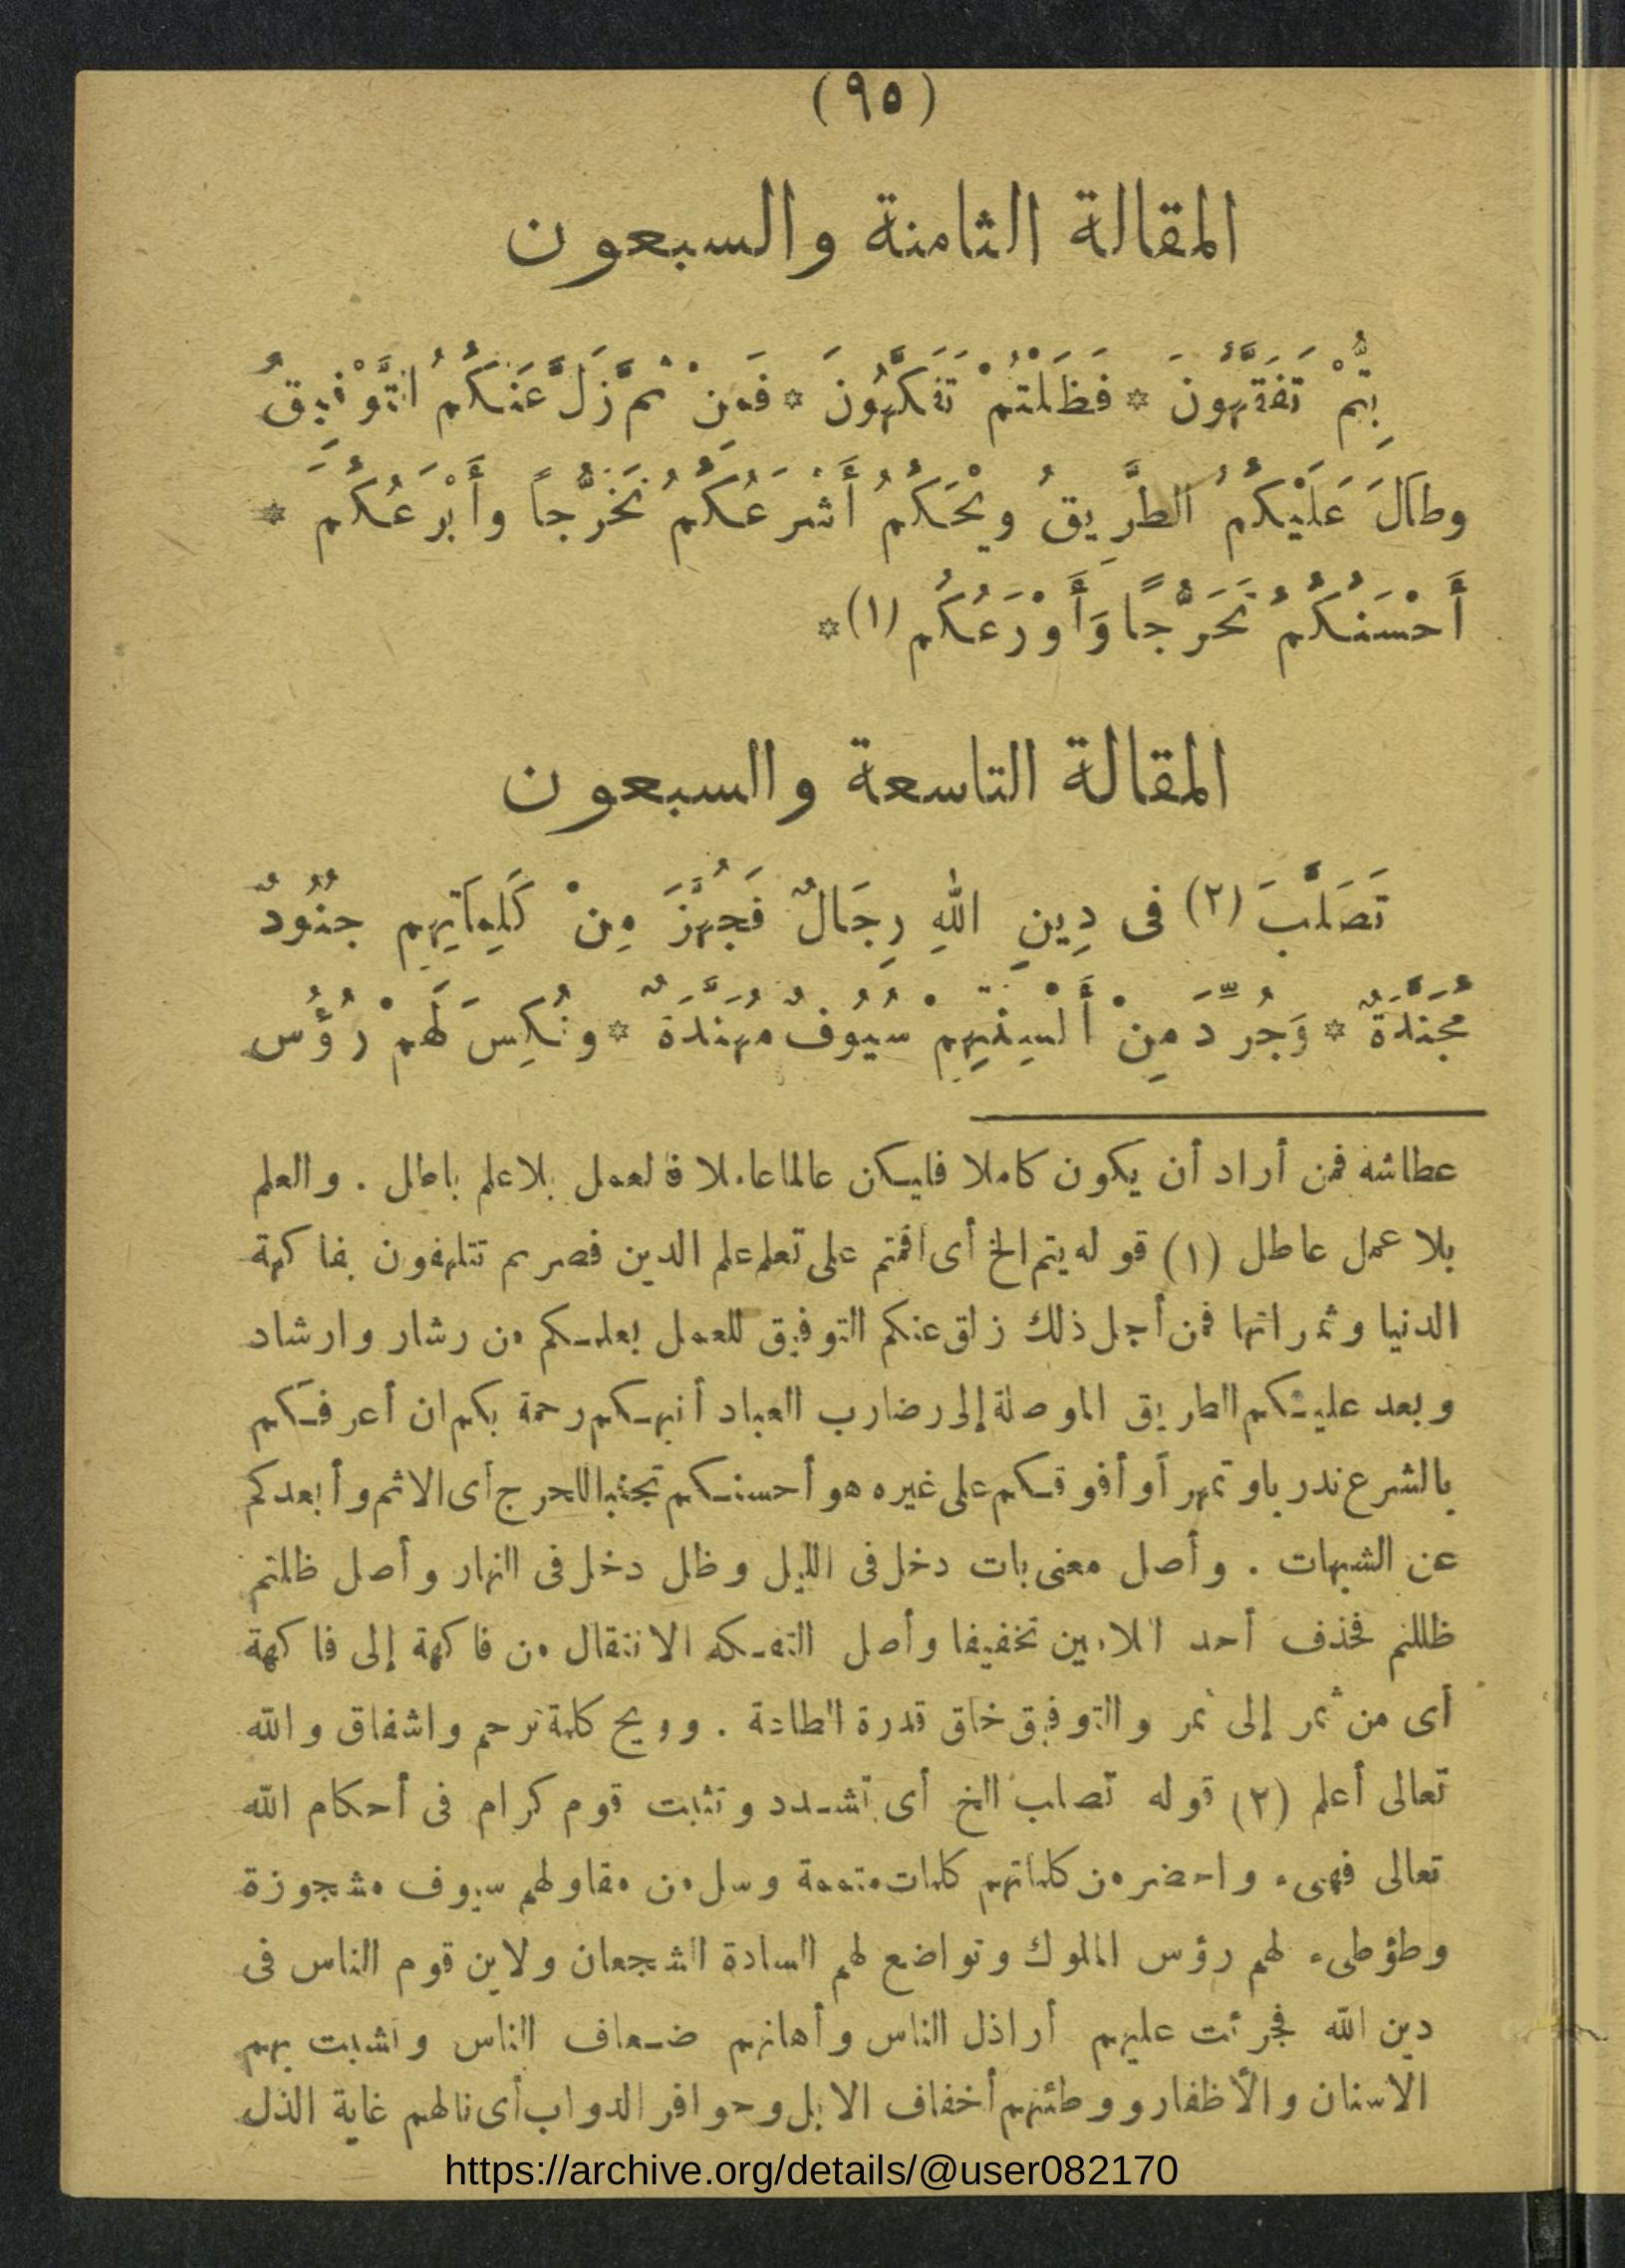 (٩٥)
المقالة الثامنة والسبعون
بِتُّمْ تَفَقَّهُونَ * فَظَلْتُمْ تَفَكَّهُونَ * فَمِنْ ثَمَّ زَلَّ عَنْكُمُ التَّوْفِيقُ
وطَالَ عَلَيْكُمُ الطَّرِيقُ ويْحَكُمُ أَشْرَعُكُمُ تَخَرُّجاً وأَبْرَعُكُمَ *
أَحْسَنُكُمُ تَحَرُّجًا وَأَوْرَعُكُم (١) *
المقالة التاسعة والسبعون
تَصَلَّبَ (٢) فى دِينِ اللهِ رِجَالٌ فَجُهِّزَ مِنْ كَلِمَاتِهِم جنُودٌ
مُجَنَّدَةٌ * وَجُرِّدَ مِنْ أَلْسِنَتِهِمْ سُيُوفٌ مُهَنَّدَةٌ * ونُكِسَ لَهَمْ رُؤُس
عطاشه فمن أراد أن يكون كاملا فليكن عالما عاملا فالعمل بلا علم باطل . والعلم
بلا عمل عاطل (١) قوله بتم الخ أى اقمتم على تعلم علم الدين فصرتم تتلهفون بفاكهة
الدنيا وثمراتها فمن أجل ذلك زلق عنكم التوفيق للعمل بعلمكم من رشار وارشاد
وبعد عليكم الطريق الموصلة إلى رضا رب العباد أنبهكم رحمة بكم ان أعرفكم
بالشرع تدربا وتمهر أو أفوقكم على غيره هو أحسنكم تجنبا للحرج أى الاثم وأبعدكم
عن الشبهات . وأصل معنى بات دخل فى الليل وظل دخل فى النهار وأصل ظلتم
ظللتم فحذف أحد اللامين تخفيفا وأصل التفكه الانتقال من فاكهة إلى فاكهة
أى من ثمر إلى ثمر والتوفيق خلق قدرة الطاعة . وويح كلمة ترحم واشفاق والله
تعالى أعلم (٢) قوله تصلب الخ أى تشدد وتثبت قوم كرام فى أحكام الله
تعالى فهيء واحضر من كلماتهم كلمات متممة وسل من مقاولهم سيوف مشجوزة
وطؤطىء لهم رؤس الملوك وتواضع لهم السادة الشجعان ولاين قوم الناس فى
دين الله فجرئت عليهم أراذل الناس وأهانهم ضعاف الناس وانشبت بهم
الاسنان والأظفار ووطئتهم أخفاف الابل وحوافر الدواب أى نالهم غاية الذل
https://archive.org/details/@user082170